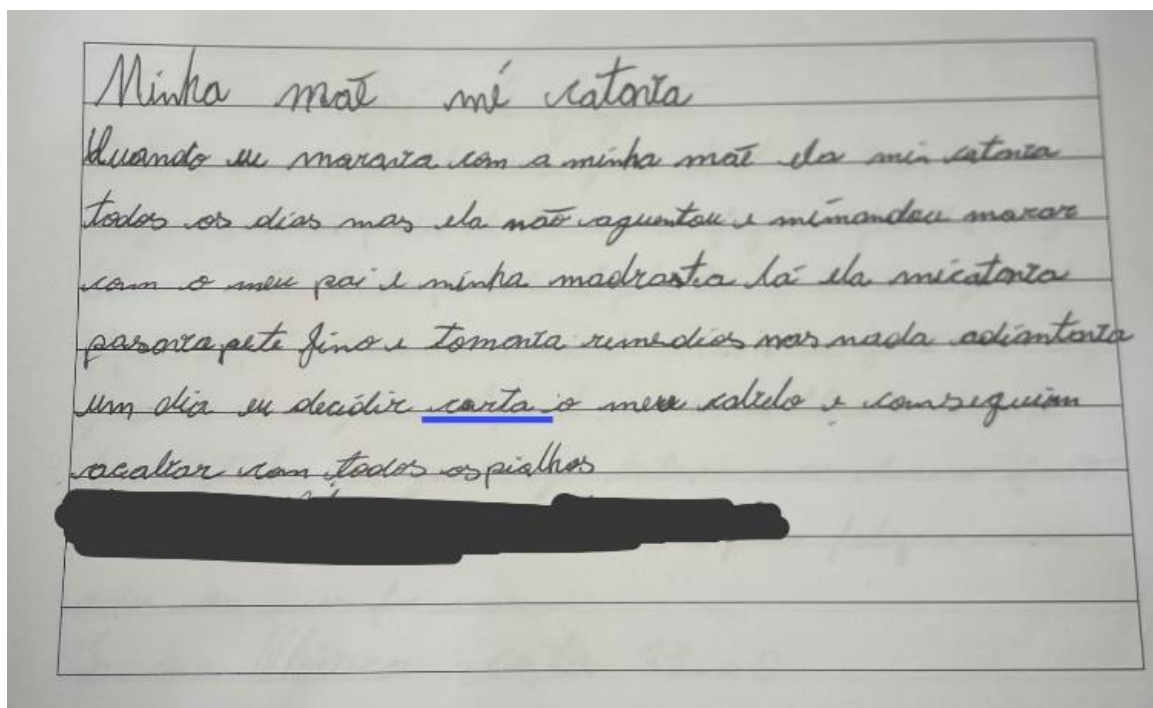 Minha maẽ mé catava
Quando eu morava com a minha maẽ ela min catava
todos os dias mas ela não aguentou e mimandou morar
com o meu pai e minha madrasta lá ela micatava
pasava pete fino e tomava remedios mas nada adiantava
um dia eu decidir corta o meu cabelo e conseguim
acabar com todos os pialhos